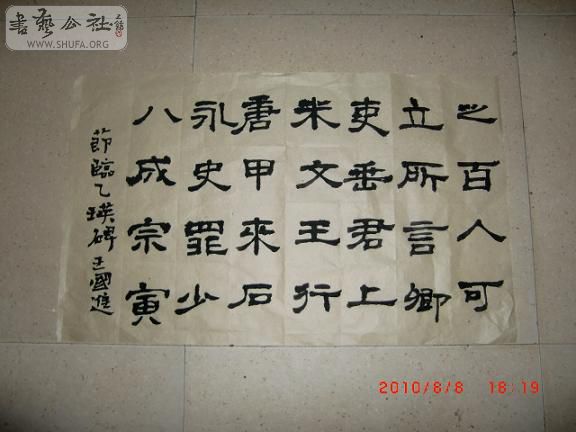 書藝公社
WWW.SHUFA.ORG
之百人可
立所言卿
吏垂君上
米文王行
唐甲來石
永史罪少
八成宗寅
節臨乙瑛碑 王國進
2010/8/8 18:19